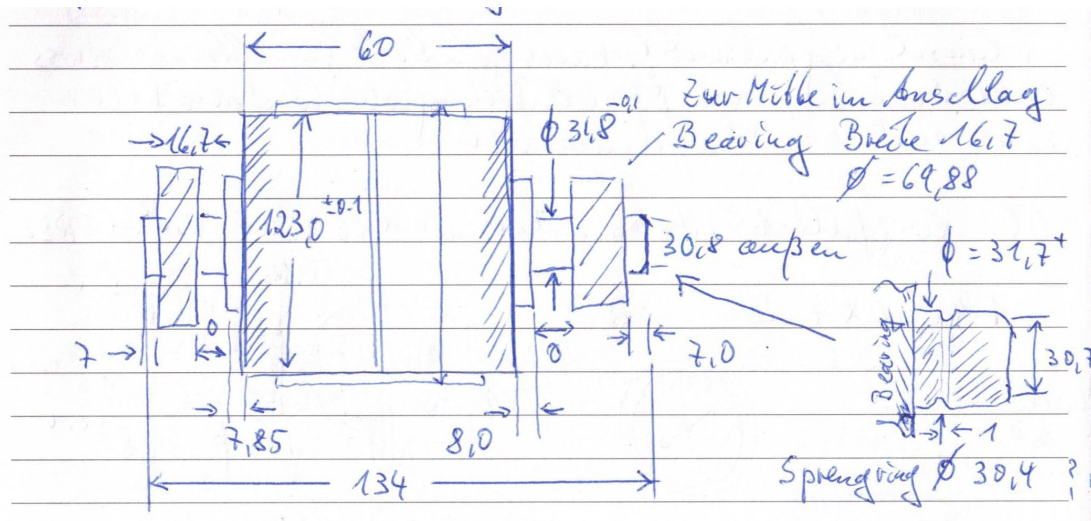 60
Zur Mitte im Anschlag
Bearing Breite 16,7
ϕ = 69,88
→16,7←
ϕ 31,8 -0,1
123,0 ±0.1
30,8 außen
ϕ = 31,7+
Bearing
30,7
0
7
0
7,0
1
7,85
8,0
134
Sprengring ϕ 30,4 ?